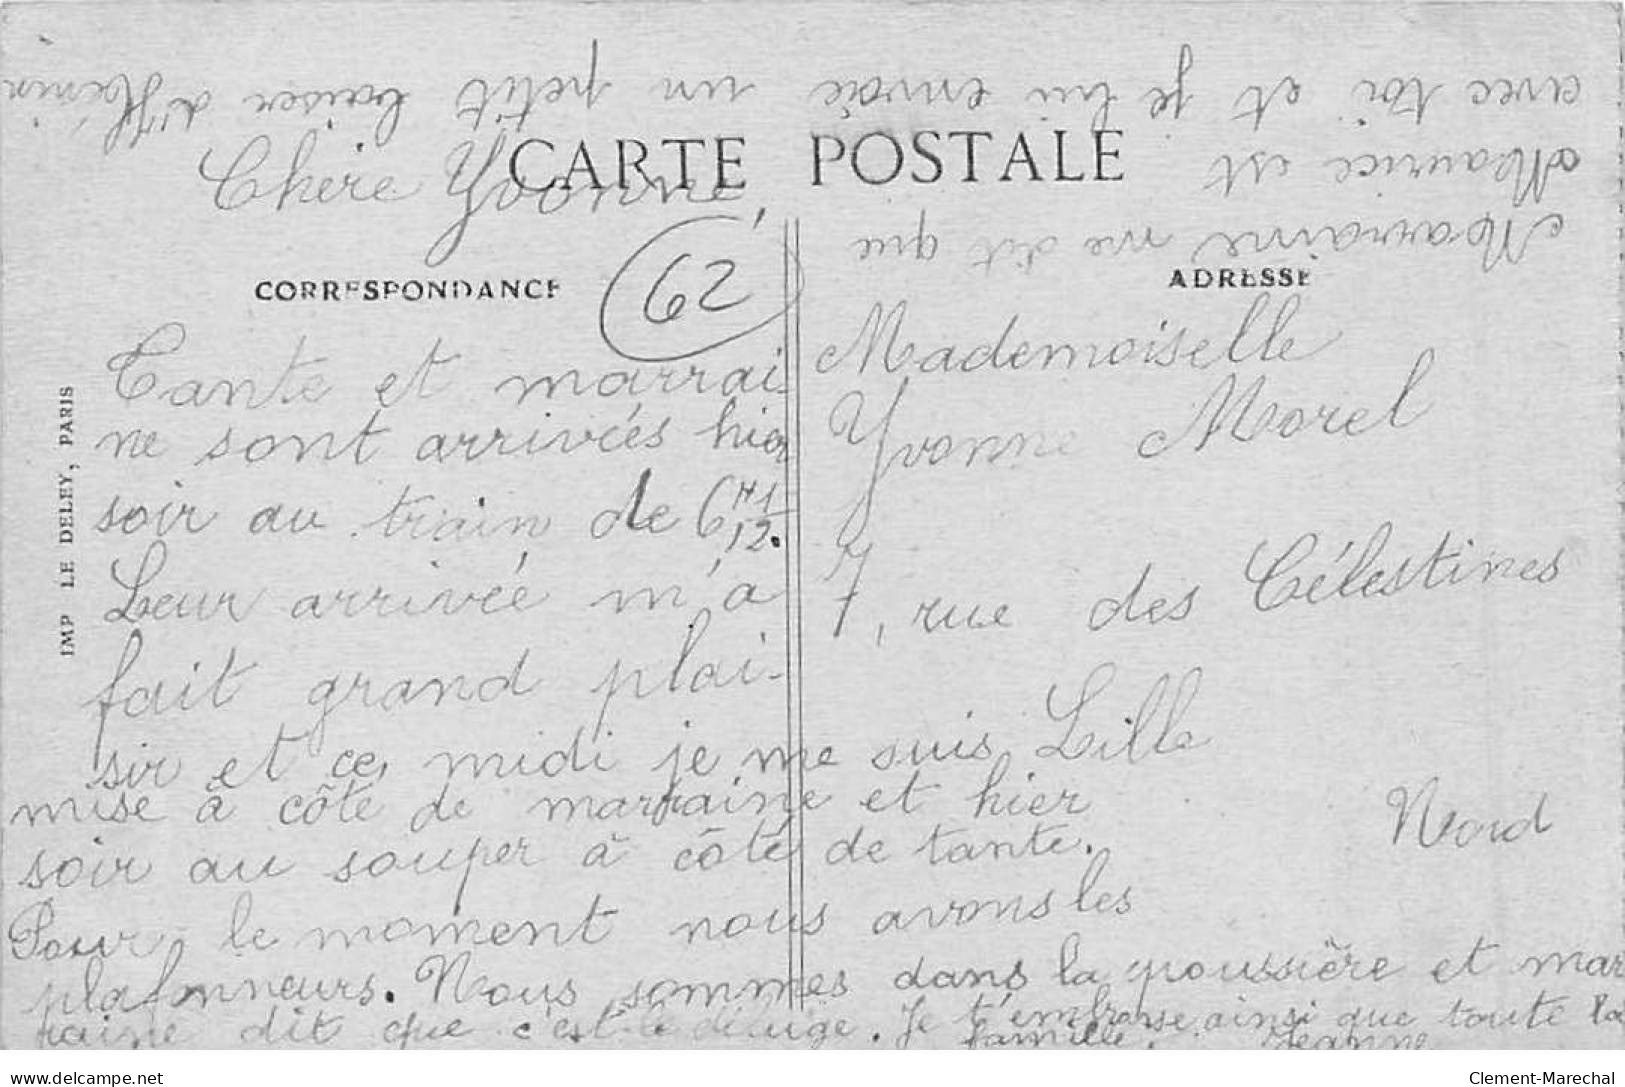 CARTE POSTALE
Chère Yvonne,
CORRESPONDANCE
62
Tante et marrai-
ne sont arrivées hier
soir au train de 6H 1/2.
Leur arrivée m'a
fait grand plai-
sir et ce midi je me suis
mise à côté de marraine et hier
soir au souper à côté de tante.
Pour le moment nous avons les
plafonneurs. Nous sommes dans la poussière et mar
raine dit que c'est le déluge. Je t'embrasse ainsi que toute la
famille. Jeanne
Marraine me dit que
Maurice est
avec toi et je lui envoie un petit baiser d'Hénin
ADRESSE
Mademoiselle
Yvonne Morel
7, rue des Célestines
Lille
Nord
IMP LE DELEY, PARIS
delcampe.net
Clement-Marechal